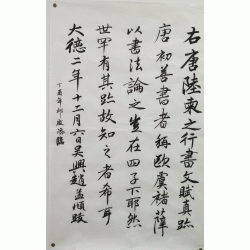 右唐陸柬之行書文賦真跡
唐初善書者稱歐虞褚薛
以書法論之豈在四子下耶然
世罕有其跡故知之者希耳
大德二年十二月六日吳興趙孟頫跋
丁酉年
臨